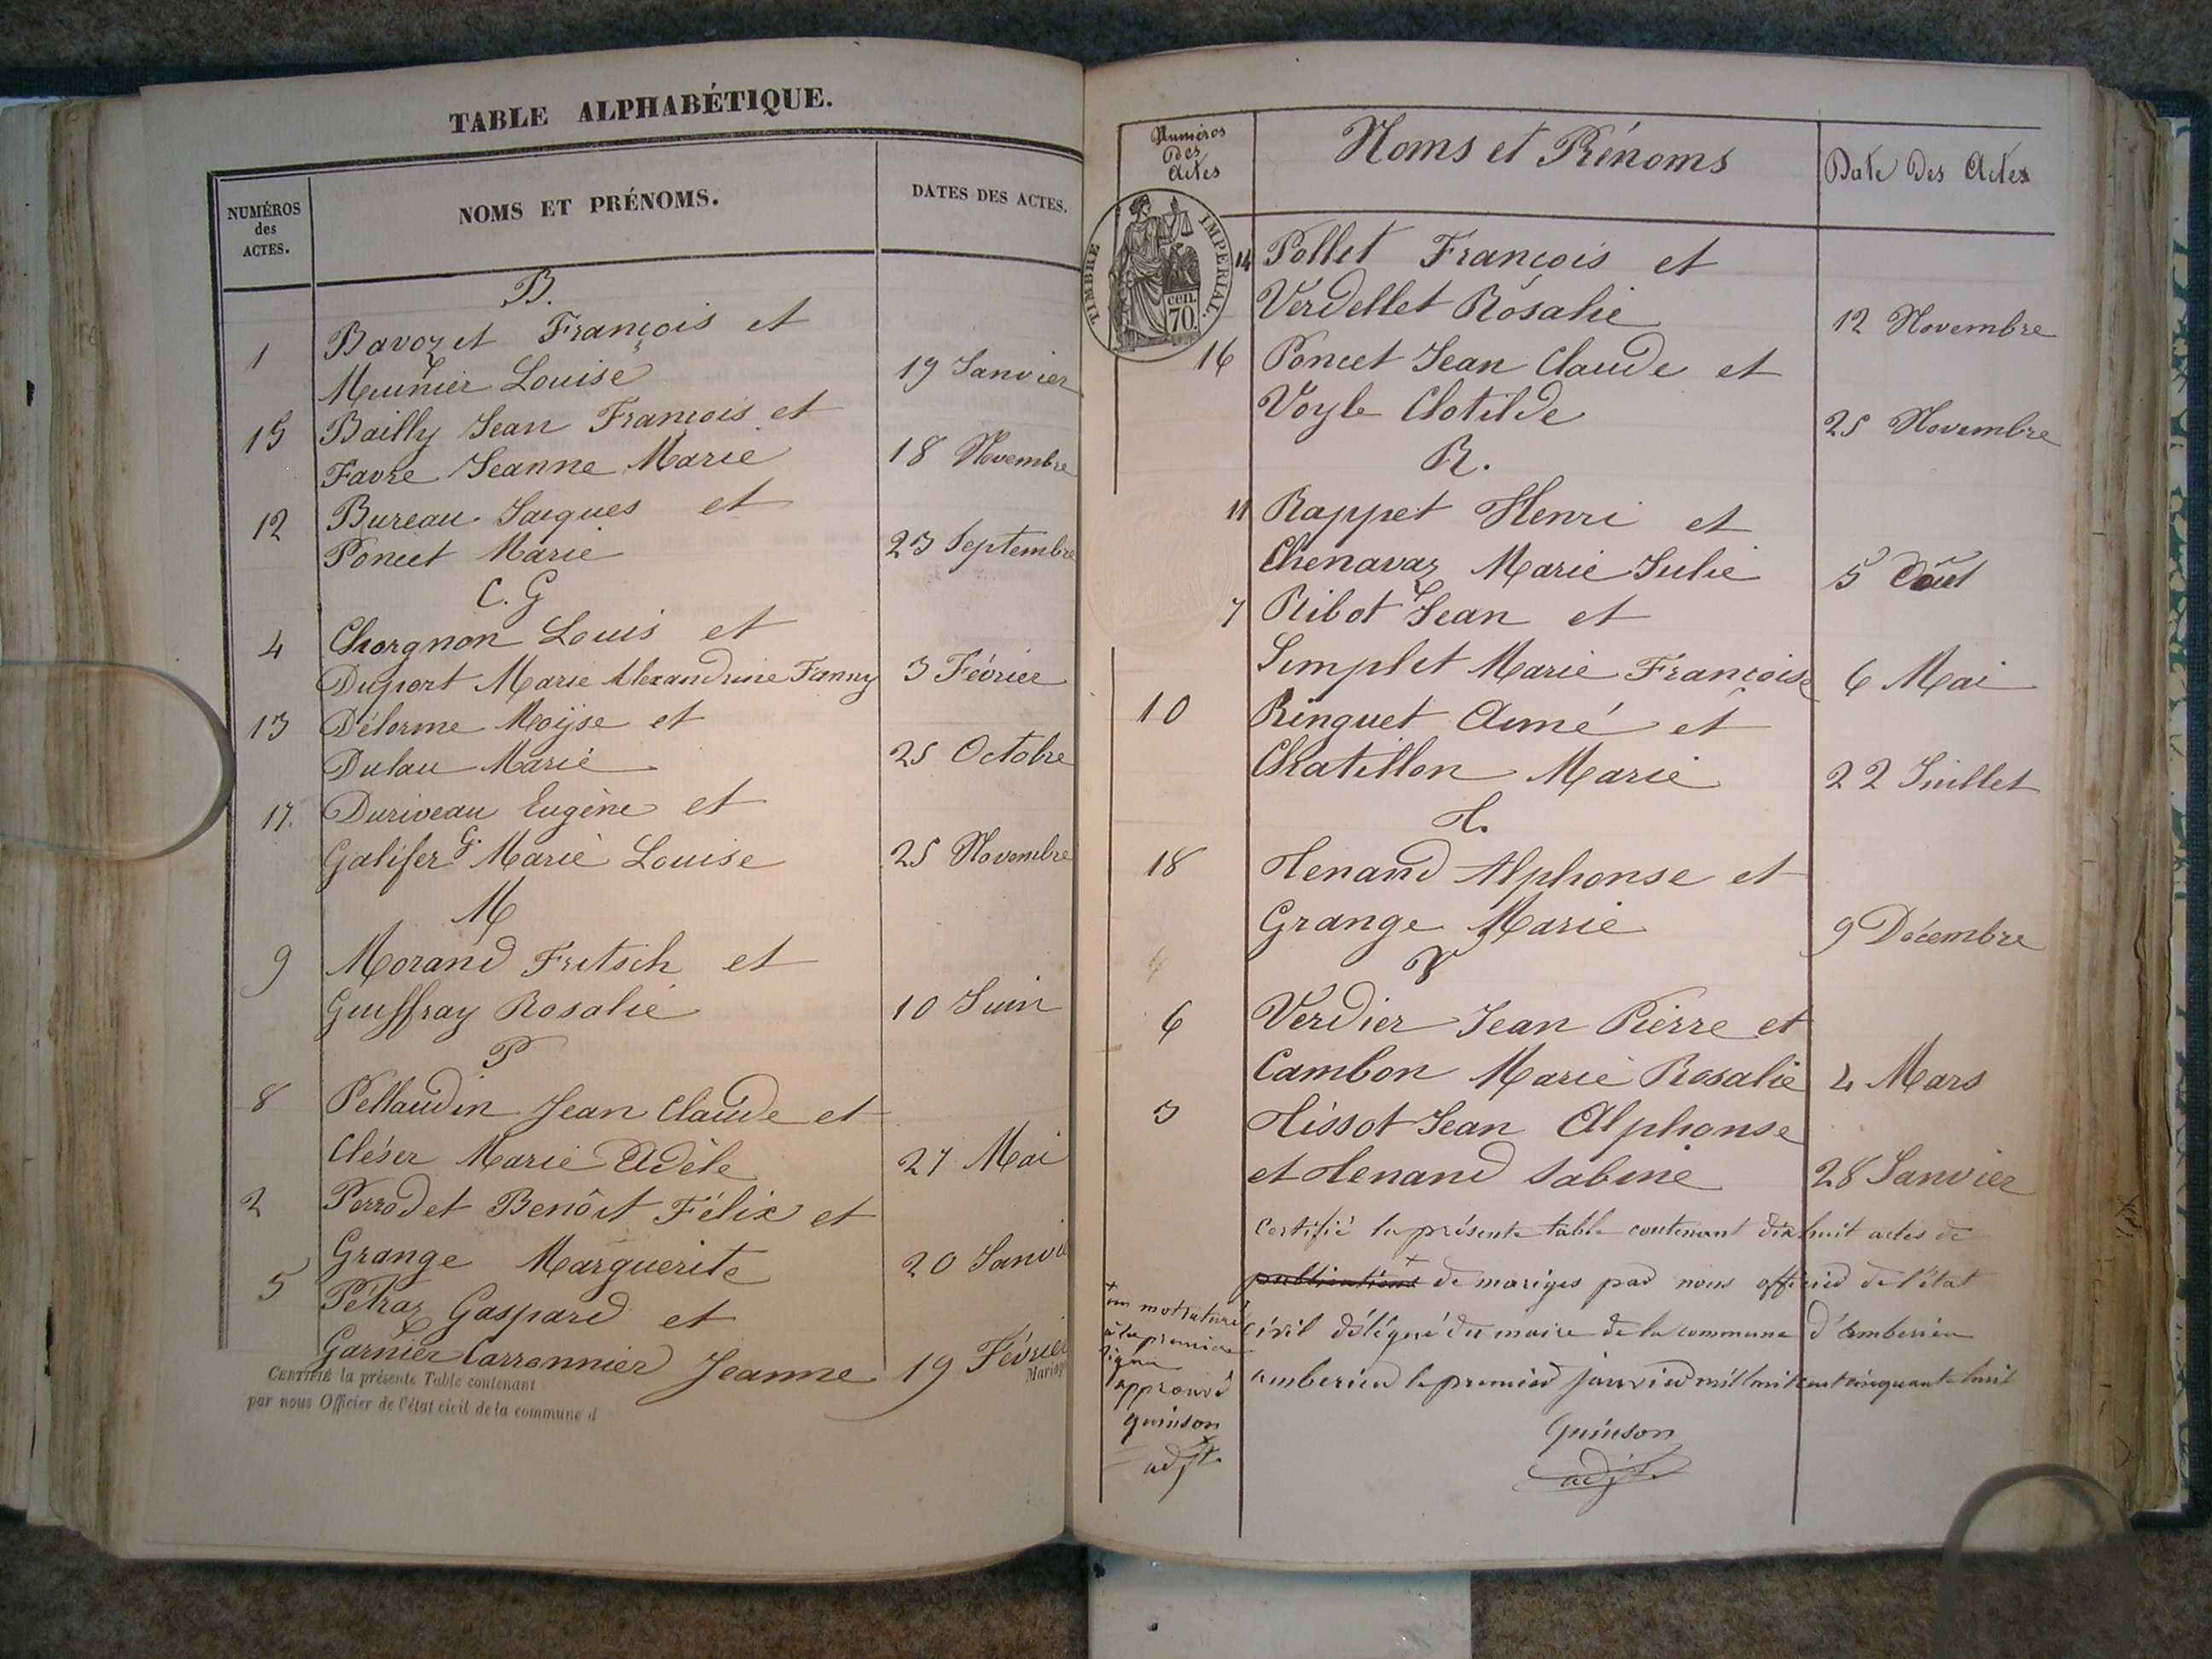 TABLE ALPHABÉTIQUE.
NUMÉROS
des
ACTES.
NOMS ET PRÉNOMS.
DATES DES ACTES.
B.
1 Bavozet François et
Meunier Louise 19 Janvier
15 Bailly Jean François et
Favre Jeanne Marie 18 Novembre
12 Bureau Jacques et
Poncet Marie 23 Septembre
C. G
4 Chorgnon Louis et
Duport Marie Alexandrine Fanny 3 Février
13 Délorme Moÿse et
Dulau Marie 25 Octobre
17. Duriveau Eugène et
Galifer G. Marie Louise 25 Novembre
M
9 Morand Fritsch et
Guiffray Rosalie 10 Juin
P
8 Pellaudin Jean Claude et
Cléser Marie Adèle 27 Mai
2 Perrodet Benôit Félix et
Grange Marguerite 20 Janvi
5 Pétraz Gaspard et
Garnier Carronnier Jeanne 19 Février
Mariag
CERTIFIÉ la présente Table contenant
par nous Officier de l'état civil de la commune d
Numéros
des
Actes
Noms et Prénoms
Date des Actes
TIMBRE IMPERIAL.
cen.
70.
14 Pollet François et
Verdellet Rosalie 12 Novembre
16 Poncet Jean Claude et
Voyle Clotilde 25 Novembre
R.
11 Rappet Henri et
Chenavaz Marie Julie 5 Août
7 Ribot Jean et
Simplet Marie Françoise 6 Mai
10 Ringuet Aimé et
Chatillon Marie 22 Juillet
T.
18 Tenand Alphonse et
Grange Marie 9 Décembre
V
6 Verdier Jean Pierre et
Cambon Marie Rosalie 4 Mars
3 Tissot Jean Alphonse
et Tenand Sabine 28 Janvier
Certifié la présente table contenant dix huit actes de
publications + de mariges par nous officier de l'état
civil délégué du maire de la commune d'amberieu
amberieu le premier janvier mil huit cent cinquante huit
Quinson
adjt.
+
un mot raturé
à la premiere
ligne
approuvé
quinson
adjt.